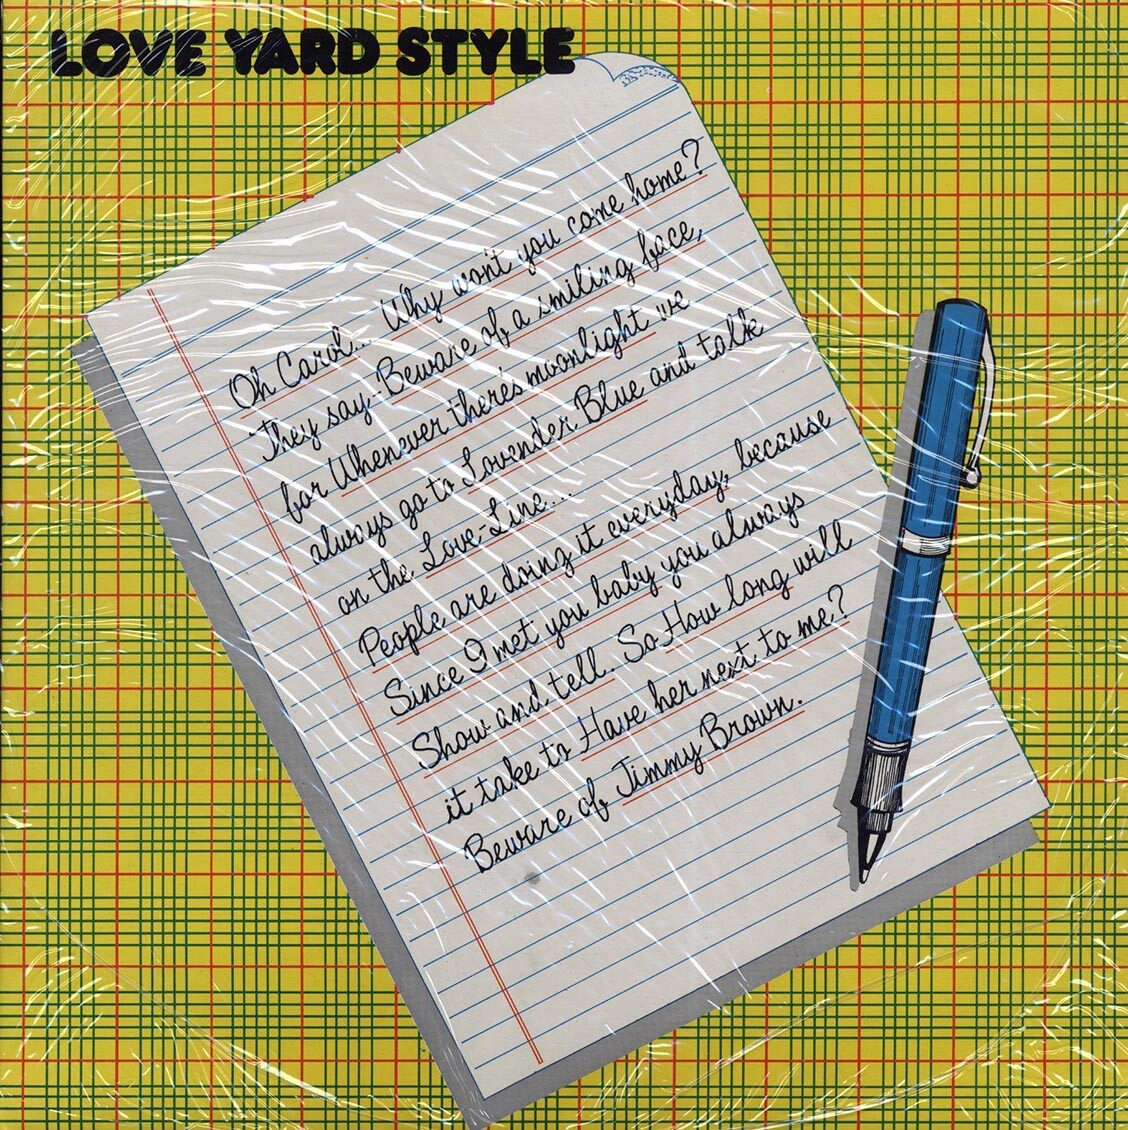 LOVE YARD STYLE
Oh Carol... Why won't you come home?
They say - Beware of a smiling face,
for Whenever there's moonlight we
always go to Lovender Blue and talk
on the Love-Line....
People are doing it everyday, because
Since I met you baby you always
Show and tell.. So How long will
it take to Have her next to me?
Beware of Jimmy Brown.